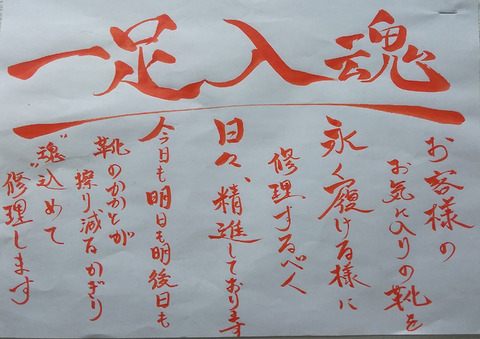 一足入魂
お客様の
お気に入りの靴を
永く履ける様に
修理するべく
日々、精進しております
今日も明日も明後日も
靴のかかとが
擦り減るかぎり
"魂"込めて
修理します